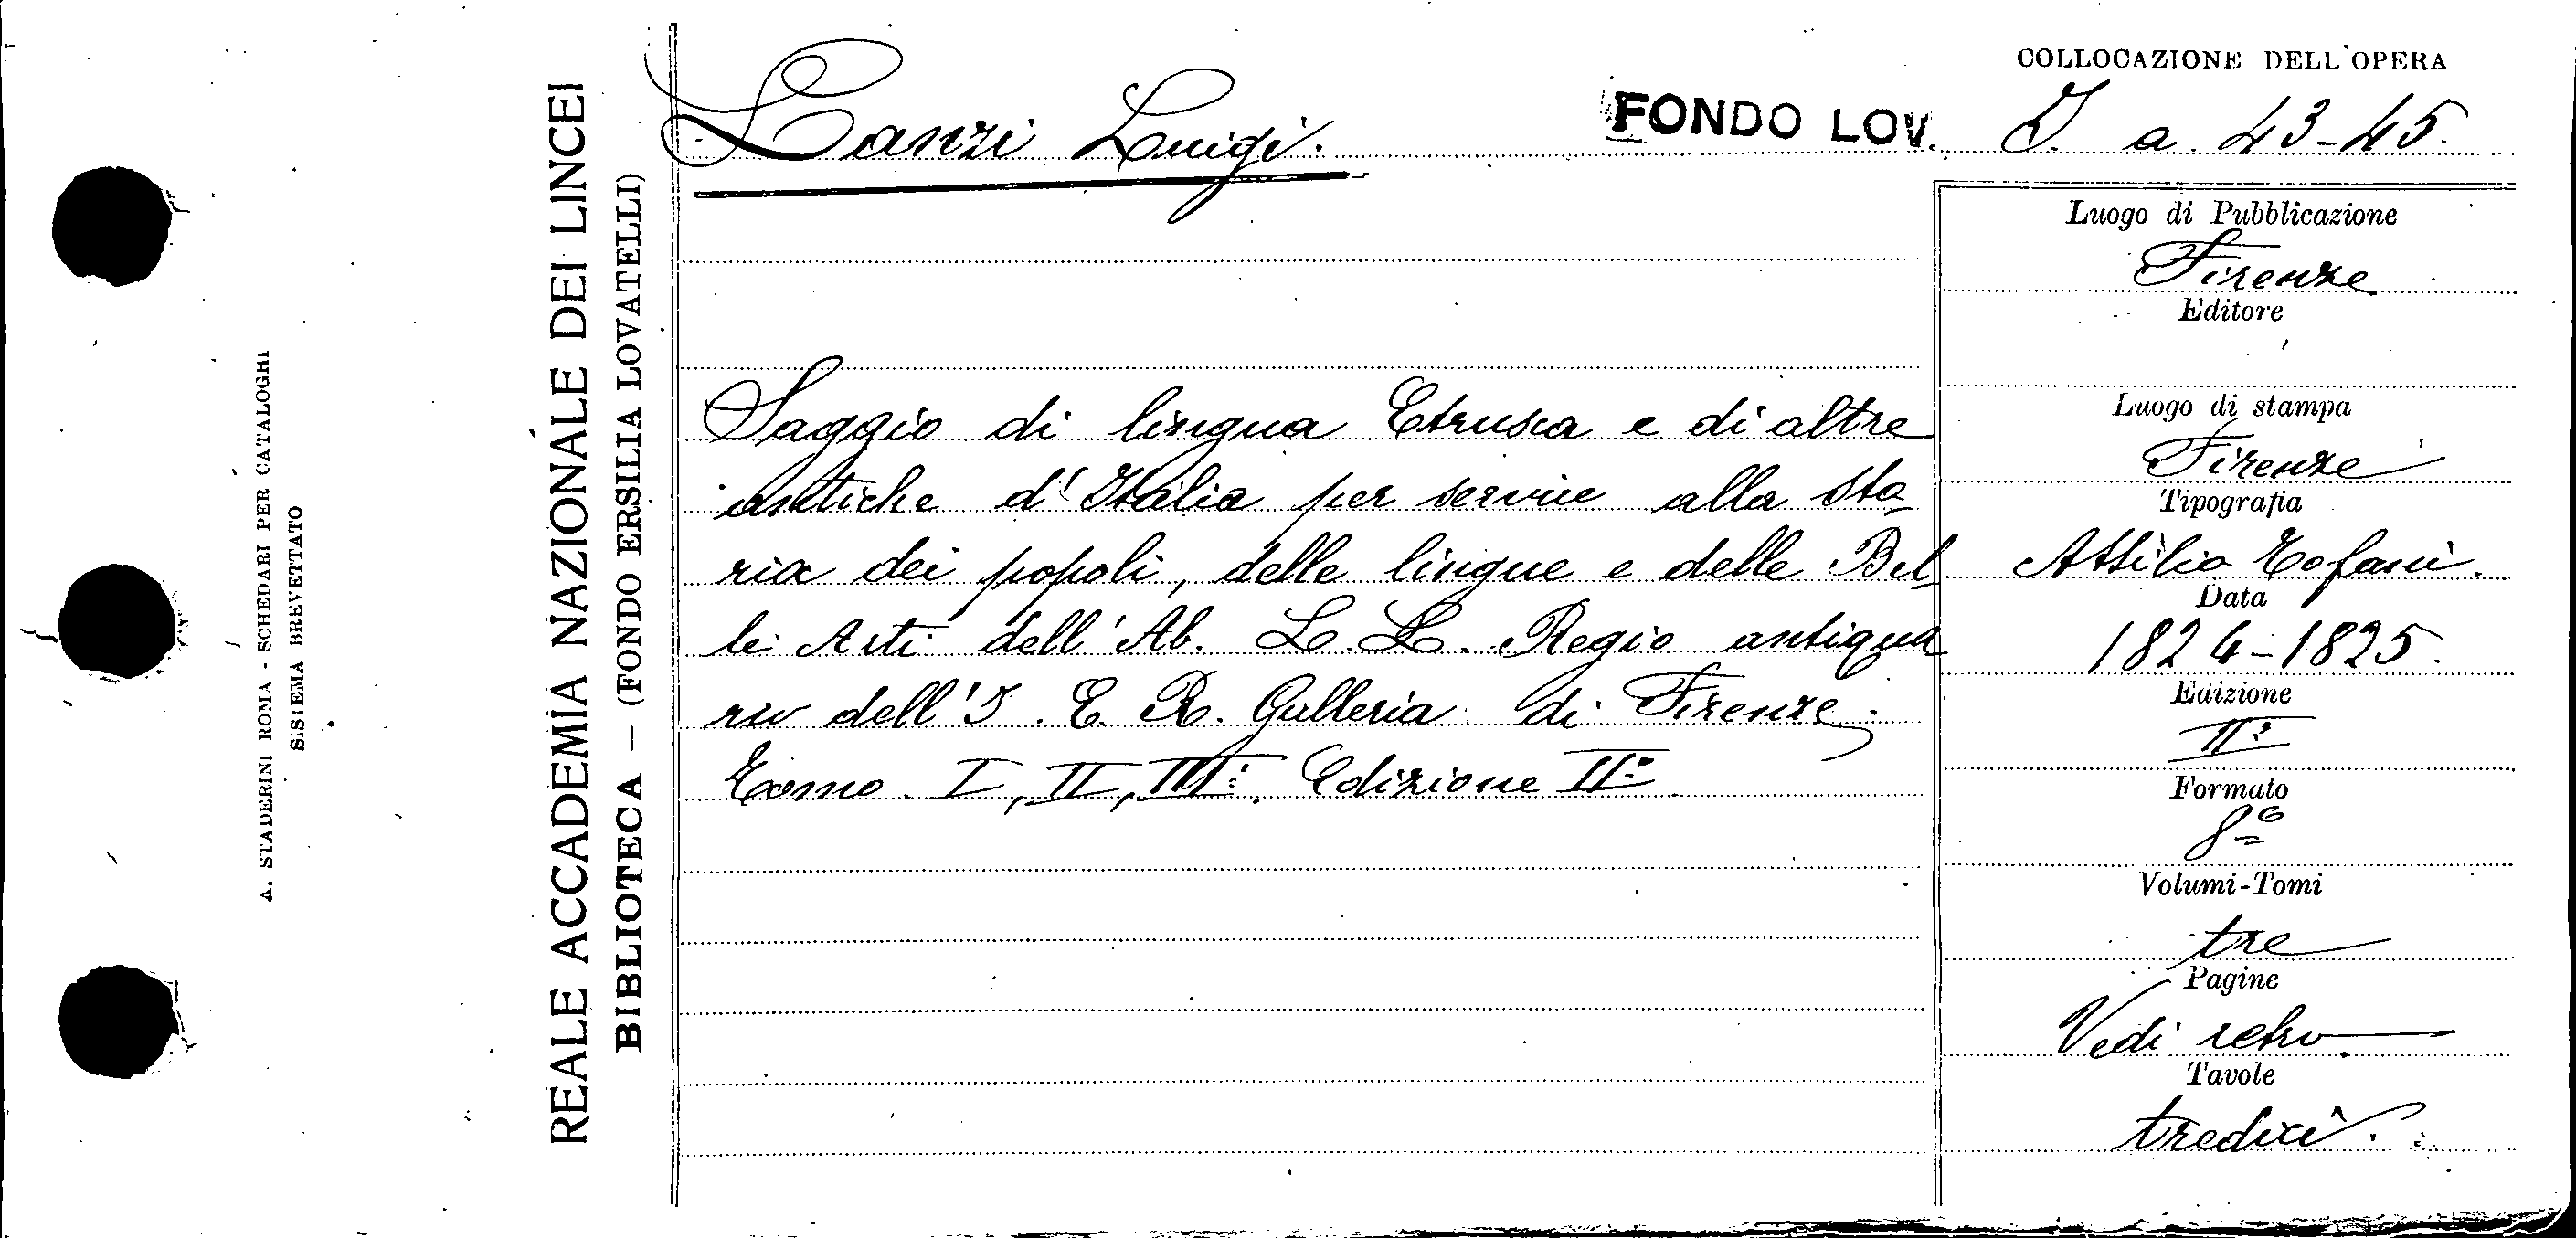 A. STADERINI ROMA - SCHEDARI PER CATALOGHI
SISTEMA BREVETTATO
REALE ACCADEMIA NAZIONALE DEI LINCEI
BIBLIOTECA — (FONDO ERSILIA LOVATELLI)
Lanzi Luigi.
FONDO LOV.
COLLOCAZIONE DELL'OPERA
I. a. 43-45.
Saggio di lingua Etrusca e di altre
antiche d'Italia per servire alla sto
ria dei popoli, delle lingue e delle Bel
le Arti dell'Ab. L. L. Regio antiqua
rio dell'I. E R. Galleria di Firenze.
Tomo I, II, III: Edizione IIª
Luogo di Pubblicazione
Firenze
Editore
Luogo di stampa
Firenze
Tipografia
Attilio Tofani.
Data
1824-1825.
Edizione
IIª
Formato
8º
Volumi-Tomi
tre
Pagine
Vedi retro.
Tavole
tredici.